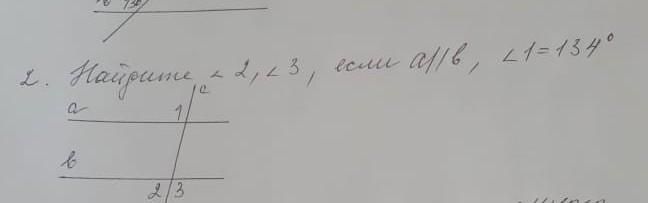 2. Найдите ∠2, ∠3, если a||b, ∠1=134°
c
a
1
b
2 3